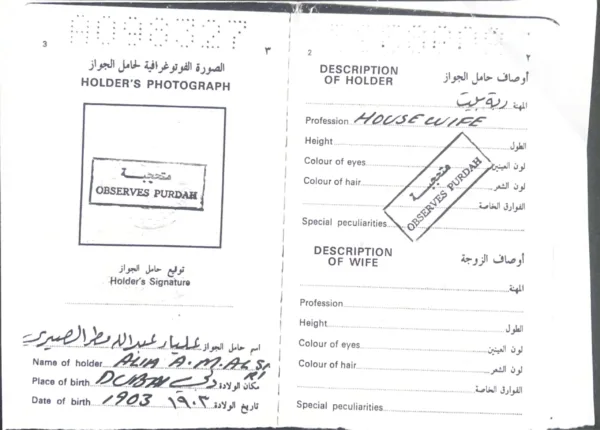 A098327
3
٣
الصورة الفوتوغرافية لحامل الجواز
HOLDER'S PHOTOGRAPH
متحجبة
OBSERVES PURDAH
توقيع حامل الجواز
Holder's Signature
اسم حامل الجواز علياء عبدالله مطر
Name of holder ALIA A. M. AL
Place of birth DUBAI دبي مكان الولادة
Date of birth 1903 ١٩٠٣ تاريخ الولادة
2
٢
DESCRIPTION OF HOLDER
أوصاف حامل الجواز
المهنة ربة بيت
Profession HOUSE WIFE
Height الطول
Colour of eyes لون العينين
Colour of hair لون الشعر
الفوارق الخاصة
Special peculiarities
متحجبة
OBSERVES PURDAH
DESCRIPTION OF WIFE
أوصاف الزوجة
المهنة
Profession
Height الطول
Colour of eyes لون العينين
Colour of hair لون الشعر
الفوارق الخاصة
Special peculiarities